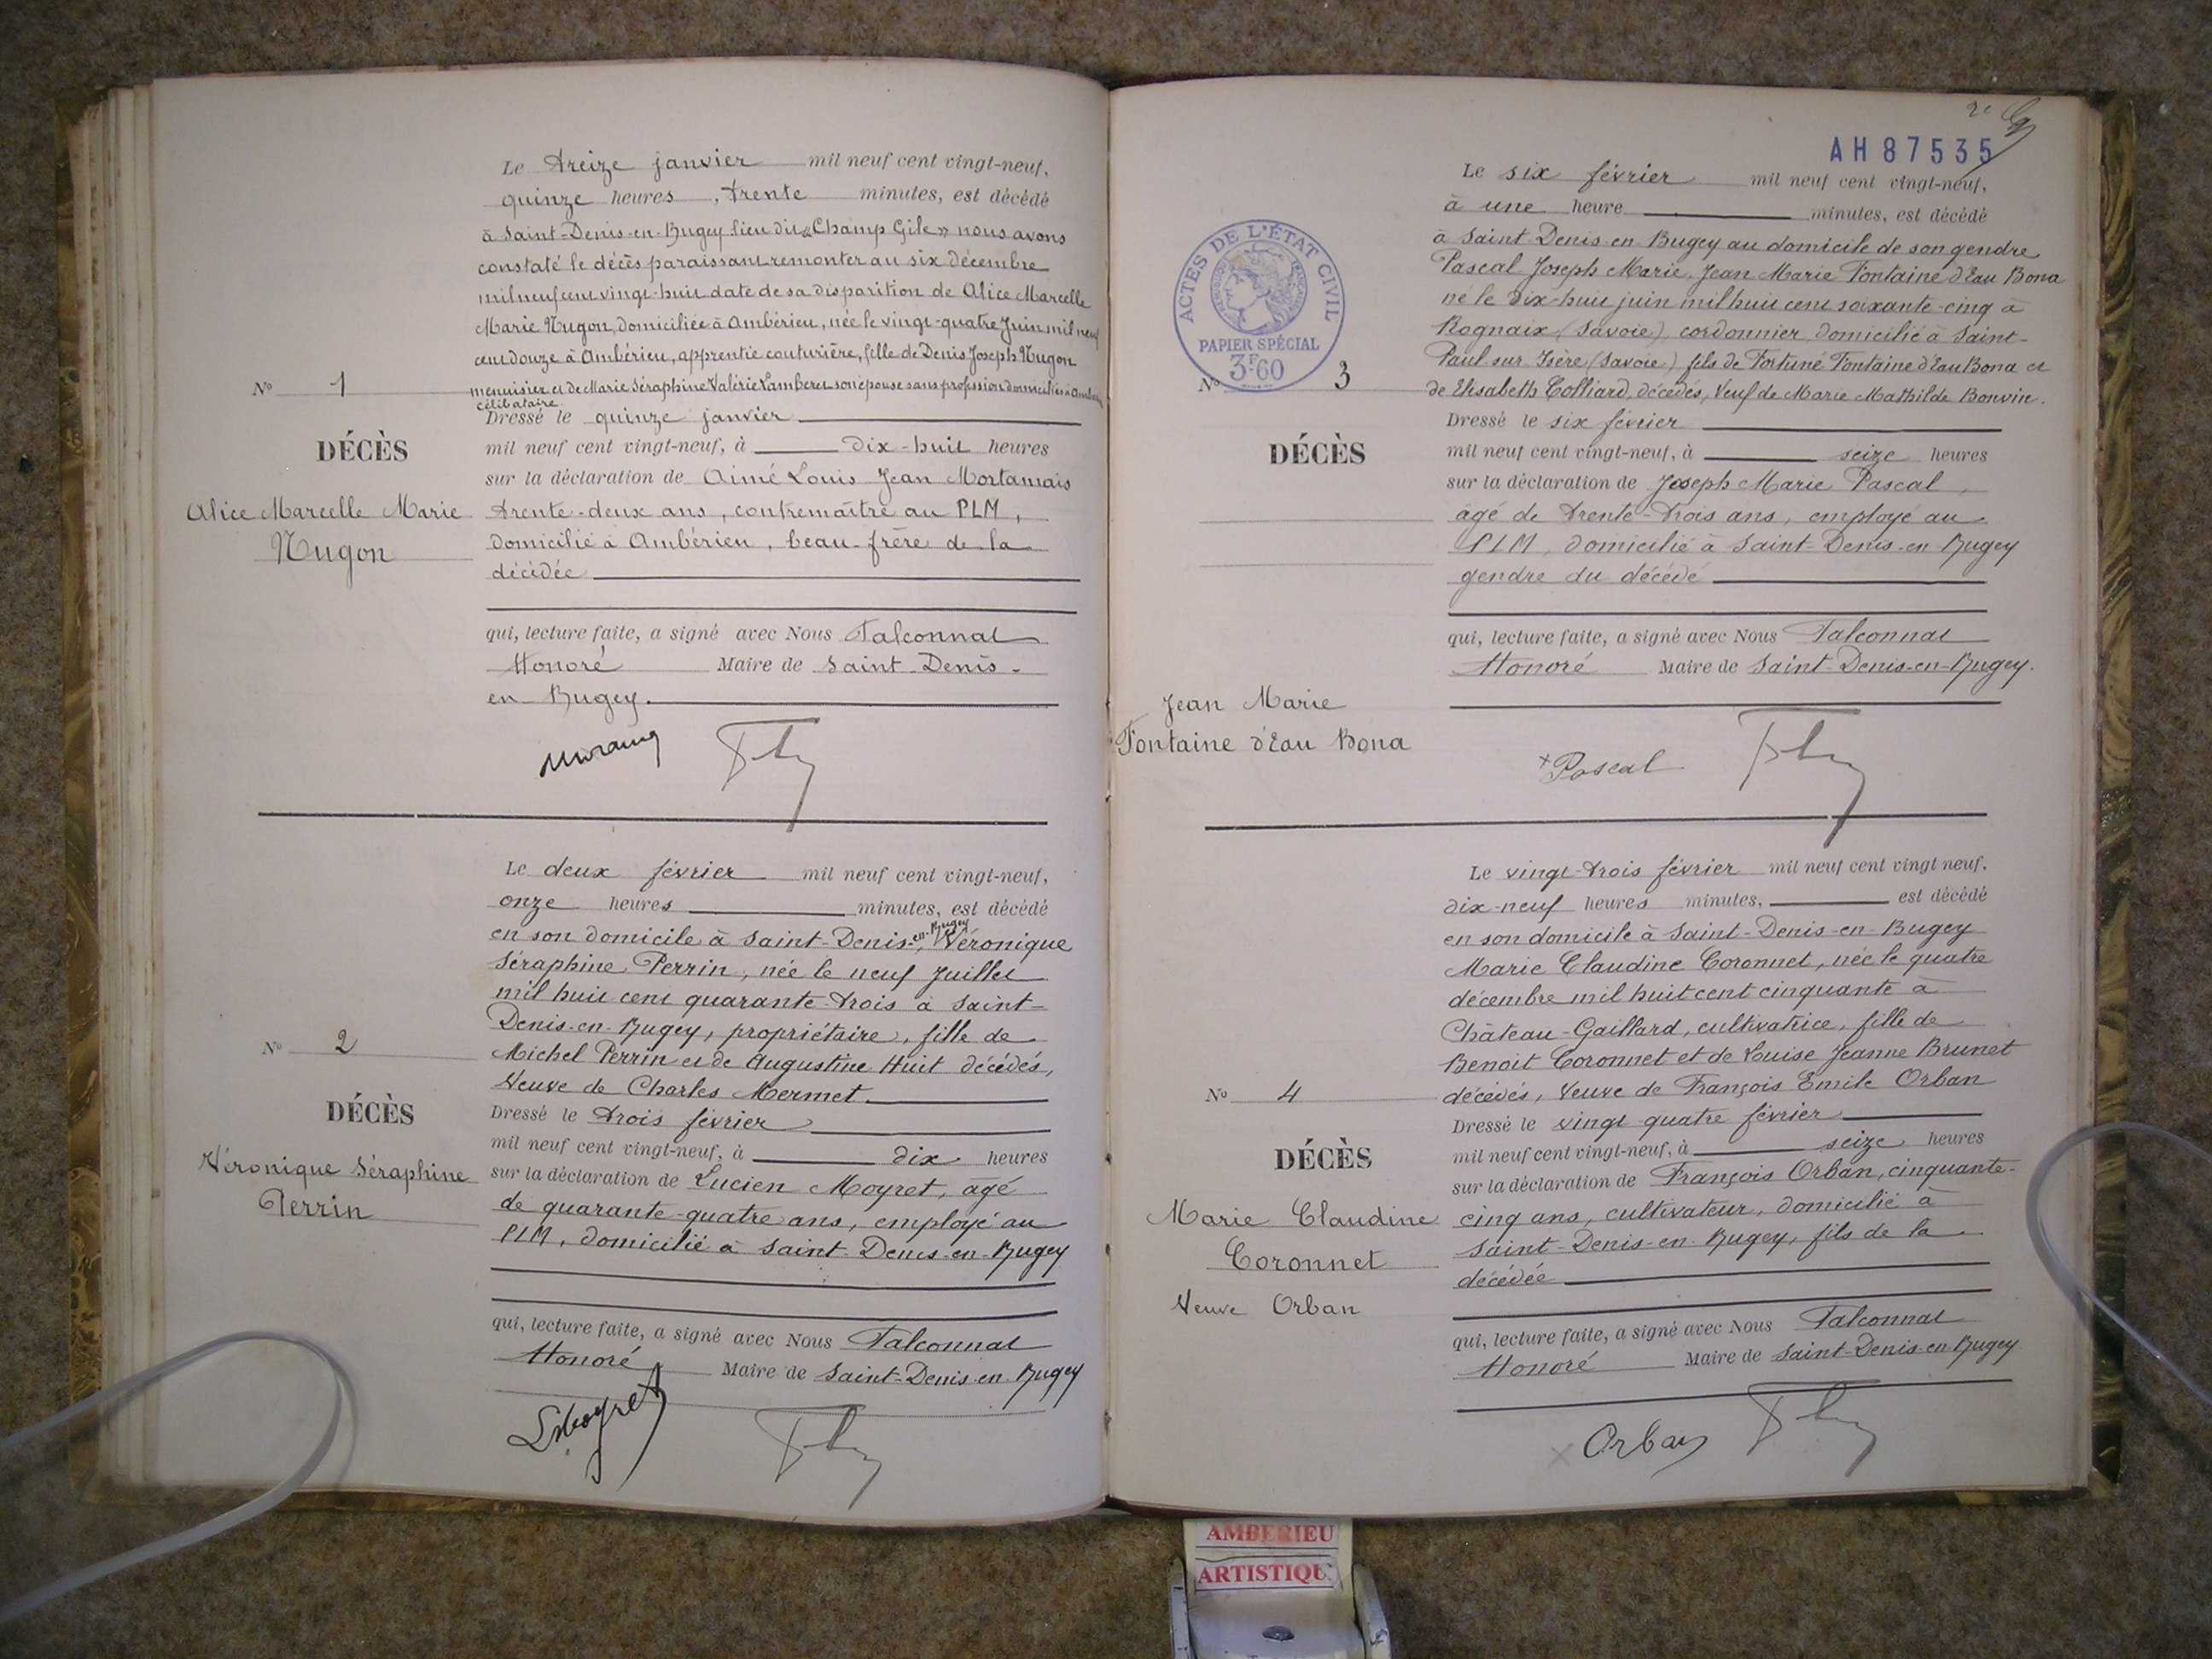 Le treize janvier mil neuf cent vingt-neuf,
quinze heures, trente minutes, est décédé
à Saint-Denis-en-Bugey lieu dit « Champ Gile » nous avons
constaté le décès paraissant remonter au six décembre
mil neuf cent vingt-huit date de sa disparition de Alice Marcelle
Marie Nugon, domiciliée à Ambérieu, née le vingt-quatre Juin mil neuf
cent douze à Ambérieu, apprentie couturière, fille de Denis Joseph Nugon
menuisier et de Marie Séraphine Valérie Lamberet son épouse sans profession domiciliés à
célibataire.
N° 1
Dressé le quinze janvier
mil neuf cent vingt-neuf, à dix-huit heures
DÉCÈS
sur la déclaration de Aimé Louis Jean
Alice Marcelle Marie
Nugon
trente-deux ans, contremaître au PLM,
domicilié à Ambérieu, beau-frère de la
décédée
qui, lecture faite, a signé avec Nous Falconnat
Honoré Maire de Saint-Denis-
en-Bugey.
Le deux février mil neuf cent vingt-neuf,
onze heures minutes, est décédé
en son domicile à Saint-Denis-en-Bugey, Véronique
Séraphine Perrin, née le neuf Juillet
mil huit cent quarante-trois à Saint-
Denis-en-Bugey, propriétaire, fille de
Michel Perrin et de Augustine Huit décédés,
Veuve de Charles Mermet.
N° 2
DÉCÈS
Véronique Séraphine
Perrin
Dressé le trois février
mil neuf cent vingt-neuf, à dix heures
sur la déclaration de Lucien Moyret, âgé
de quarante-quatre ans, employé au
PLM, domicilié à Saint-Denis-en-Bugey
qui, lecture faite, a signé avec Nous Falconnat
Honoré Maire de Saint-Denis-en-Bugey
LMoyret
2e
AH 87535
Le six février mil neuf cent vingt-neuf,
à une heure minutes, est décédé
à Saint-Denis-en-Bugey au domicile de son gendre
Pascal Joseph Marie, Jean Marie Fontaine d'Eau Bona
né le dix-huit juin mil huit cent soixante-cinq à
Rognaix (Savoie), cordonnier, domicilié à Saint-
Paul-sur-Isère (Savoie) fils de Fortuné Fontaine d'Eau Bona et
de Elisabeth Colliard, décédés, Veuf de Marie Mathilde Bonvin.
ACTES DE L'ÉTAT CIVIL
PAPIER SPÉCIAL
3F60
N° 3
DÉCÈS
Jean Marie
Fontaine d'Eau Bona
Dressé le six février
mil neuf cent vingt-neuf, à seize heures
sur la déclaration de Joseph Marie Pascal,
âgé de trente-trois ans, employé au
PLM, domicilié à Saint-Denis-en-Bugey
gendre du décédé
qui, lecture faite, a signé avec Nous Falconnat
Honoré Maire de Saint-Denis-en-Bugey.
Pascal
Le vingt-trois février mil neuf cent vingt neuf,
dix-neuf heures minutes, est décédé
en son domicile à Saint-Denis-en-Bugey
Marie Claudine Coronnet, née le quatre
décembre mil huit cent cinquante à
Château-Gaillard, cultivatrice, fille de
Benoit Coronnet et de Louise Jeanne Brunet
décédés, Veuve de François Emile Orban
N° 4
DÉCÈS
Marie Claudine
Coronnet
Veuve Orban
Dressé le vingt quatre février
mil neuf cent vingt-neuf, à seize heures
sur la déclaration de François Orban, cinquante-
cinq ans, cultivateur, domicilié à
Saint-Denis-en-Bugey, fils de la
décédée
qui, lecture faite, a signé avec Nous Falconnat
Honoré Maire de Saint-Denis-en-Bugey
Orban
AMBERIEU
ARTISTIQUE